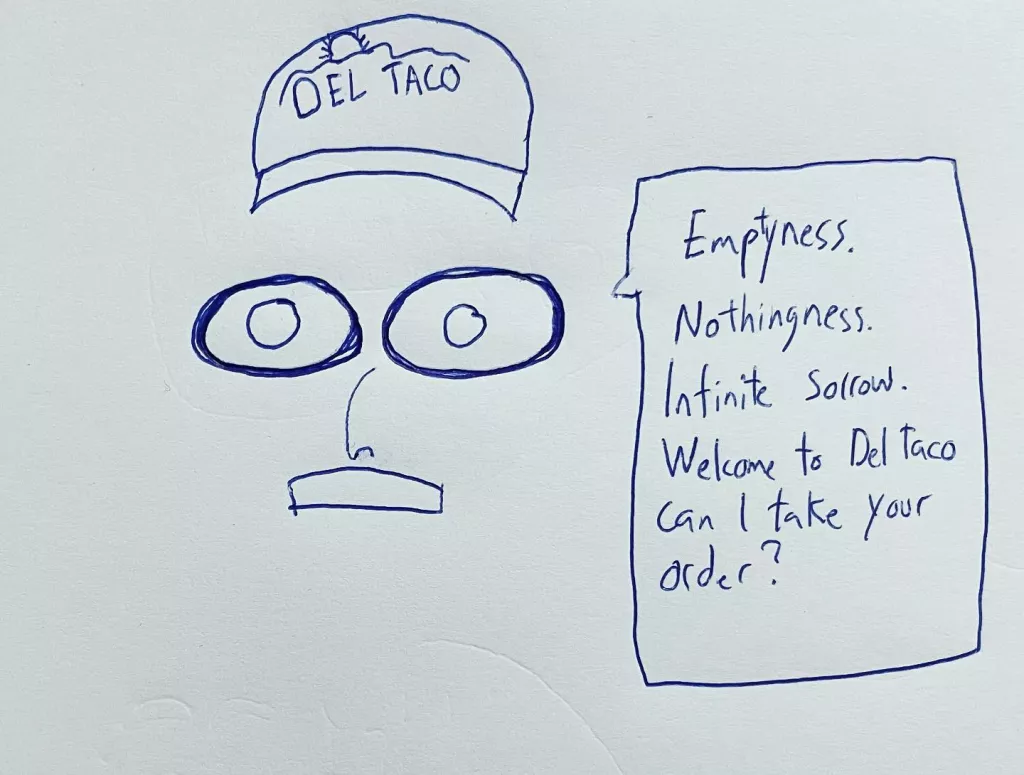 DEL TACO
Emptyness.
Nothingness.
Infinite sorrow.
Welcome to Del taco
can I take your
order?